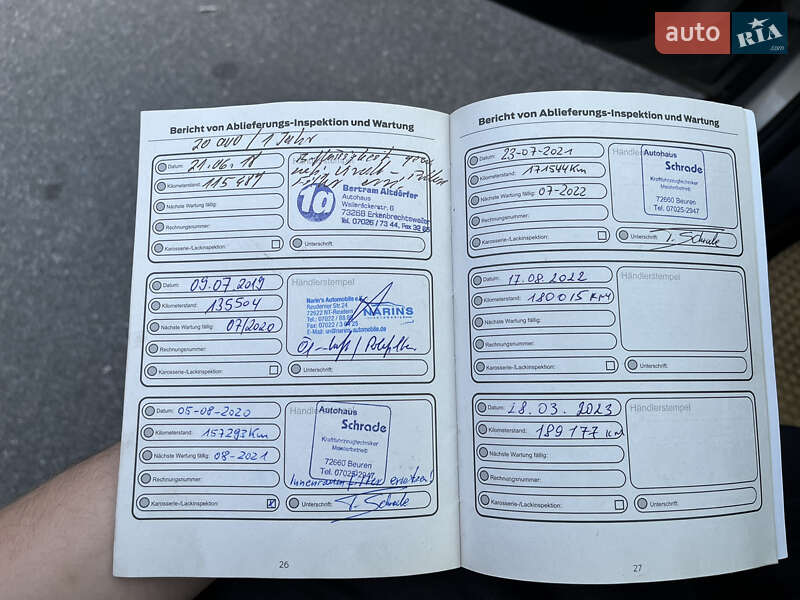 auto RIA .com
Bericht von Ablieferungs-Inspektion und Wartung
20 000 / 1 Jahr
Datum: 21.06.18
Kilometerstand: 115 487
Nächste Wartung fällig:
Rechnungsnummer:
Karosserie-/Lackinspektion:
10 Bertram Altdörfer
Autohaus
73268 Erkenbrechtsweiler
Tel. 07026 / 73 44, Fax 32 65
Unterschrift:
Datum: 09.07.2019
Kilometerstand: 135504
Nächste Wartung fällig: 07/2020
Rechnungsnummer:
Karosserie-/Lackinspektion:
Händlerstempel
Narin's Automobile e.K.
Reudener Str.24
72622 NT-Reudern
NARINS
Unterschrift:
Datum: 05-08-2020
Kilometerstand: 157293Km
Nächste Wartung fällig: 08-2021
Rechnungsnummer:
Karosserie-/Lackinspektion: x
Autohaus
Schrade
Kraftfahrzeugtechniker
Meisterbetrieb
72660 Beuren
Tel. 07025-2947
Unterschrift: T. Schrade
26
Bericht von Ablieferungs-Inspektion und Wartung
Datum: 23-07-2021
Kilometerstand: 171544Km
Nächste Wartung fällig: 07-2022
Rechnungsnummer:
Karosserie-/Lackinspektion:
Autohaus
Schrade
Kraftfahrzeugtechniker
Meisterbetrieb
72660 Beuren
Tel. 07025-2947
Unterschrift: T. Schrade
Datum: 17.08.2022
Kilometerstand: 180015 KM
Nächste Wartung fällig:
Rechnungsnummer:
Karosserie-/Lackinspektion:
Händlerstempel
Unterschrift:
Datum: 28.03.2023
Kilometerstand: 189177 KM
Nächste Wartung fällig:
Rechnungsnummer:
Karosserie-/Lackinspektion:
Händlerstempel
Unterschrift:
27